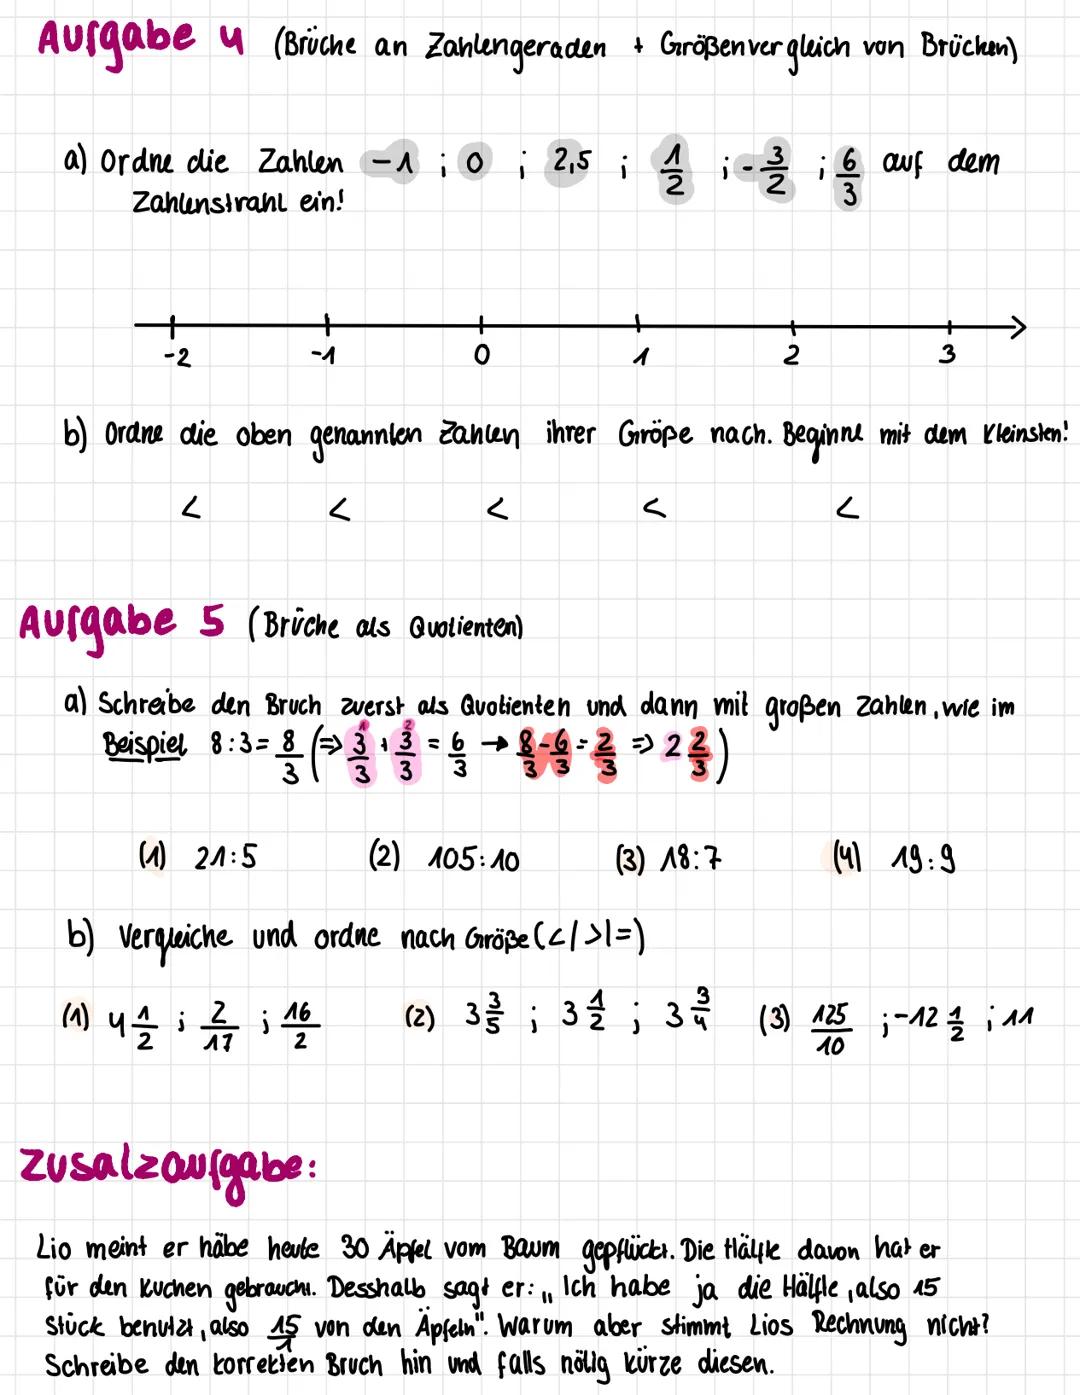 Aufgabe 4 (Brüche an Zahlengeraden + Größenvergleich von Brüchen)
a) Ordne die Zahlen -1 ; 0 ; 2,5 ; 1/2 ; -3/2 ; 6/3 auf dem
Zahlenstrahl ein!
-2 -1 0 1 2 3
b) Ordne die oben genannten Zahlen ihrer Größe nach. Beginne mit dem Kleinsten!
< < < < <
Aufgabe 5 (Brüche als Quotienten)
a) Schreibe den Bruch zuerst als Quotienten und dann mit großen Zahlen, wie im
Beispiel 8:3 = 8/3 (⇒ 1 3/3 + 2 3/3 = 6/3 → 8/3 - 6/3 = 2/3 ⇒ 2 2/3)
(1) 21:5 (2) 105:10 (3) 18:7 (4) 19:9
b) Vergleiche und ordne nach Größe (</>/=)
(1) 4 1/2 ; 2/17 ; 16/2 (2) 3 3/5 ; 3 1/2 ; 3 3/4 (3) 125/10 ; -12 1/2 ; 11
Zusatzaufgabe:
Lio meint er häbe heute 30 Äpfel vom Baum gepflückt. Die Hälfte davon hat er
für den Kuchen gebraucht. Desshalb sagt er: „Ich habe ja die Hälfte, also 15
Stück benutzt, also 15/1 von den Äpfeln". Warum aber stimmt Lios Rechnung nicht?
Schreibe den korrekten Bruch hin und falls nötig kürze diesen.